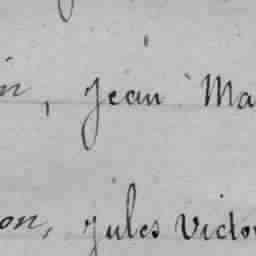 in, Jean Ma
on, Jules Victo